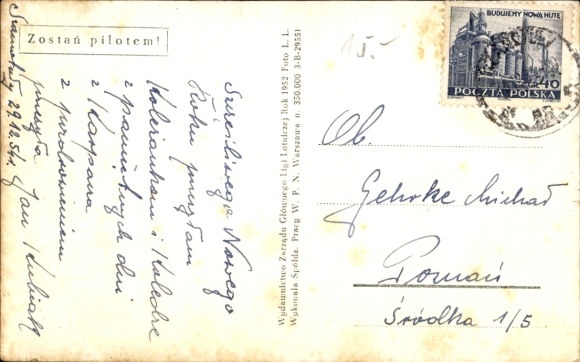 Zostań pilotem!
Szczęśliwego Nowego
Roku przesyłam
Koleżankom i Koledze
z pamiętnych dni
z Karpacza
z pozdrowieniem
przesyła Jan Kubiak
Szamotuły 29.12.54r.
Wydawnictwo Zarządu Głównego Ligi Lotniczej Rok 1952 Foto L. L.
Wykonała Spółdz. Pracy W. P. N. Warszawa n. 350.000 3-B-29551
15.-
BUDUJEMY NOWĄ HUTĘ
40
POCZTA POLSKA
Ob.
Gehrke Michał
Poznań
Śródka 1/5